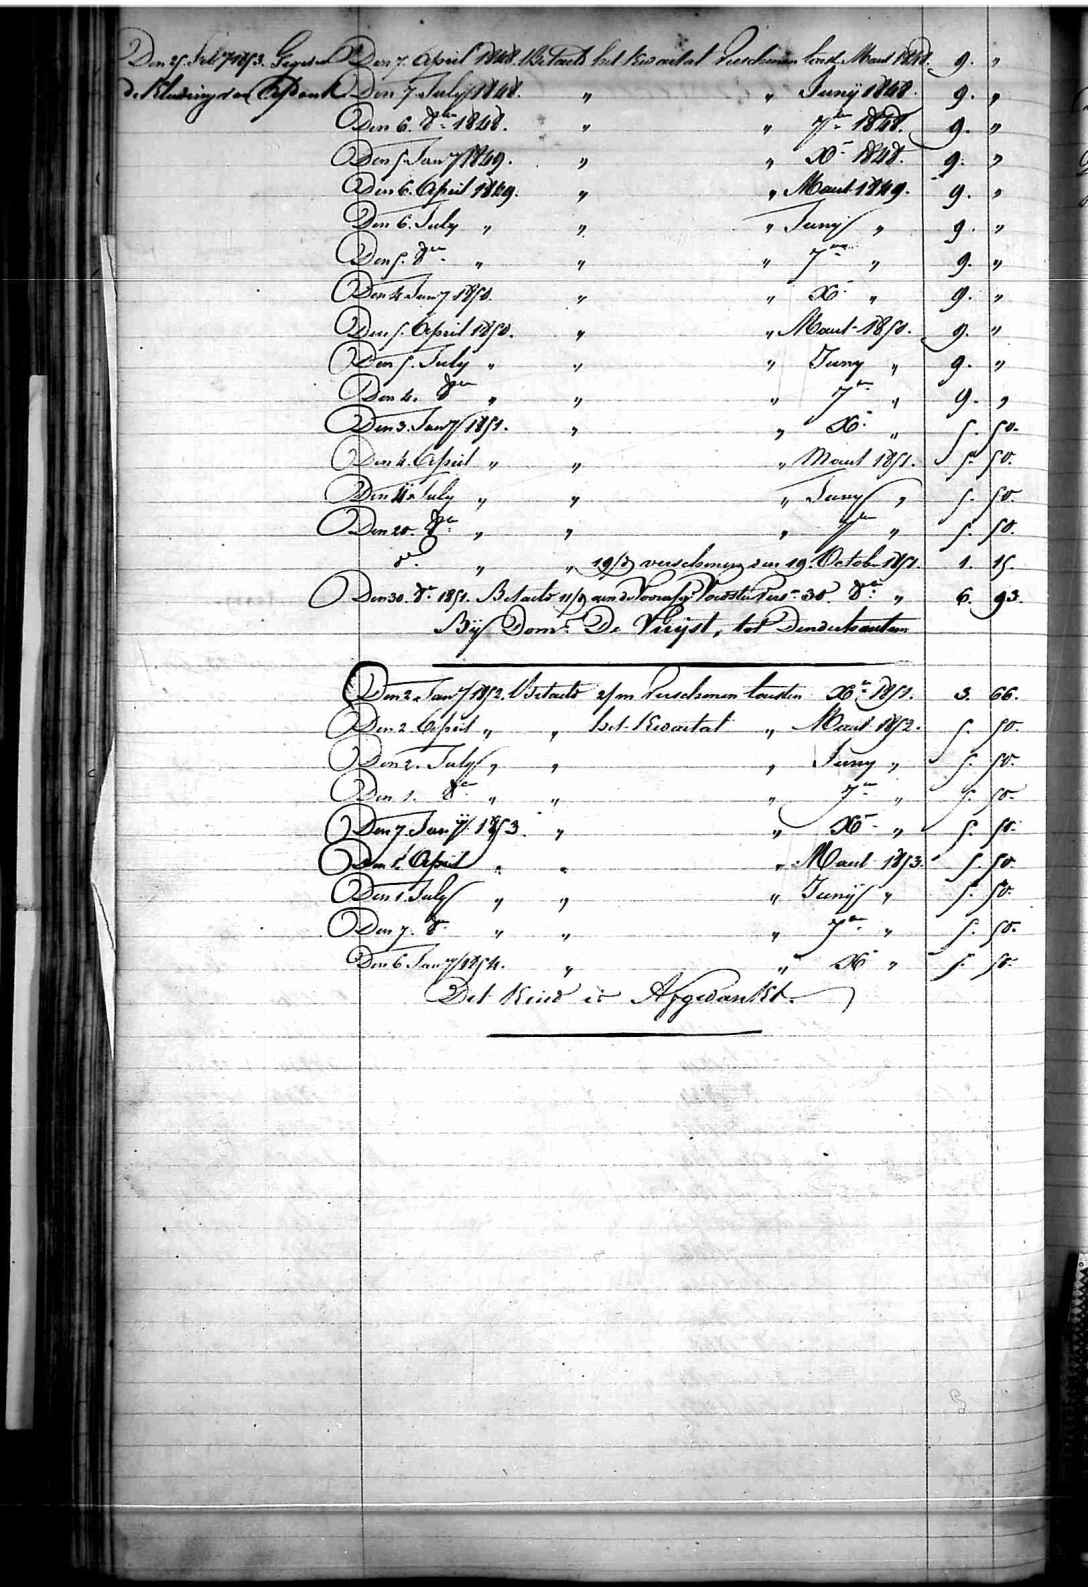 Den 25. Feb.y 1853. Gegeven
de Kleding van Afdank
Den 7. April 1848. Betaeld het Kwartal verschenen lesten Maart 1848. 9. "
Den 7. July 1848. " " Junij 1848. 9. "
Den 6. 8er 1848. " " 7er 1848. 9. "
Den 5. Jany 1849. " " Xr 1848. 9. "
Den 6. April 1849. " " Maart 1849. 9. "
Den 6. July " " " Juny " 9. "
Den 5. 8er " " " 7er " 9. "
Den 4. Jany 1850. " " Xr " 9. "
Den 5. April 1850. " " Maart 1850. 9. "
Den 5. July " " " Juny " 9. "
Den 4. 8er " " " 7er " 9. "
Den 3. Jany 1851. " " Xr " 5. 50.
Den 4. April " " " Maart 1851. 5. 50.
Den 4. July " " " Juny " 5. 50.
Den 20. 8er " " " 7er " 5. 50.
" " 19/d verschenen den 19. October 1851. 1. 15.
Den 30. 8er 1851. Betaeld 11/d aen de Voorsz. Voedster 30. 8er " 6. 93.
Bij Domc De Vuijst, tot Denderhautem
Den 2. Jany 1852. Betaeld 2/m verschenen lesten Xr 1851. 3. 66.
Den 2. April " " het Kwartal " Maart 1852. 5. 50.
Den 2. July " " " Juny " 5. 50.
Den 1. 8er " " " 7er " 5. 50.
Den 7. Jany 1853. " " Xr " 5. 50.
Den 1. April " " " Maart 1853. 5. 50.
Den 1. July " " " Junij " 5. 50.
Den 7. 8r " " " 7er " 5. 50.
Den 6. Jany 1854. " " Xr " 5. 50.
Det Kind is Afgedankt.